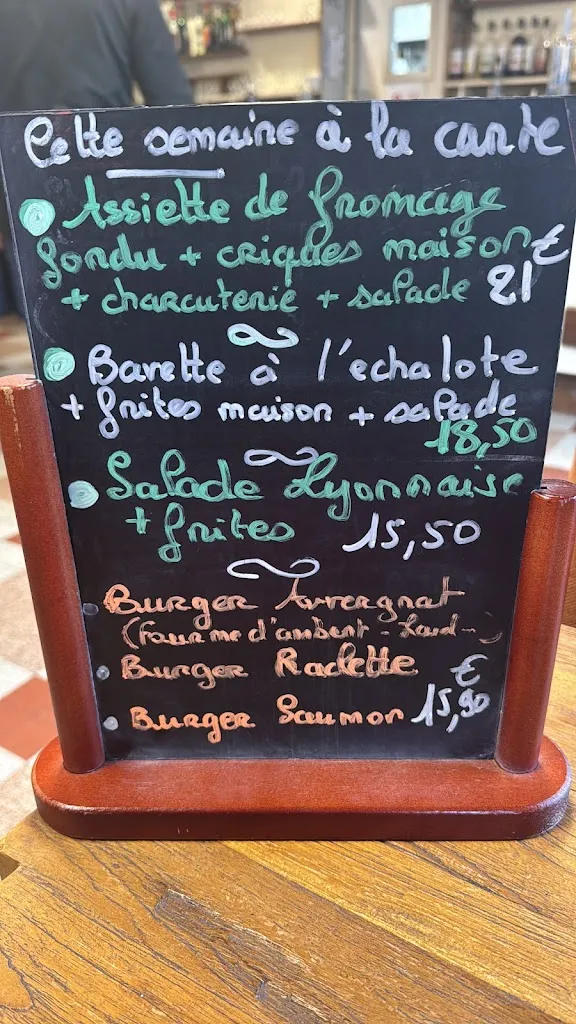 Cette semaine à la carte
Assiette de fromage
fondu + criques maison
+ charcuterie + salade 21 €
Bavette à l'echalote
+ frites maison + salade
18,50
Salade Lyonnaise
+ frites 15,50
Burger Auvergnat
(Fourme d'ambert - Lard -)
Burger Raclette
Burger Saumon 15,90 €